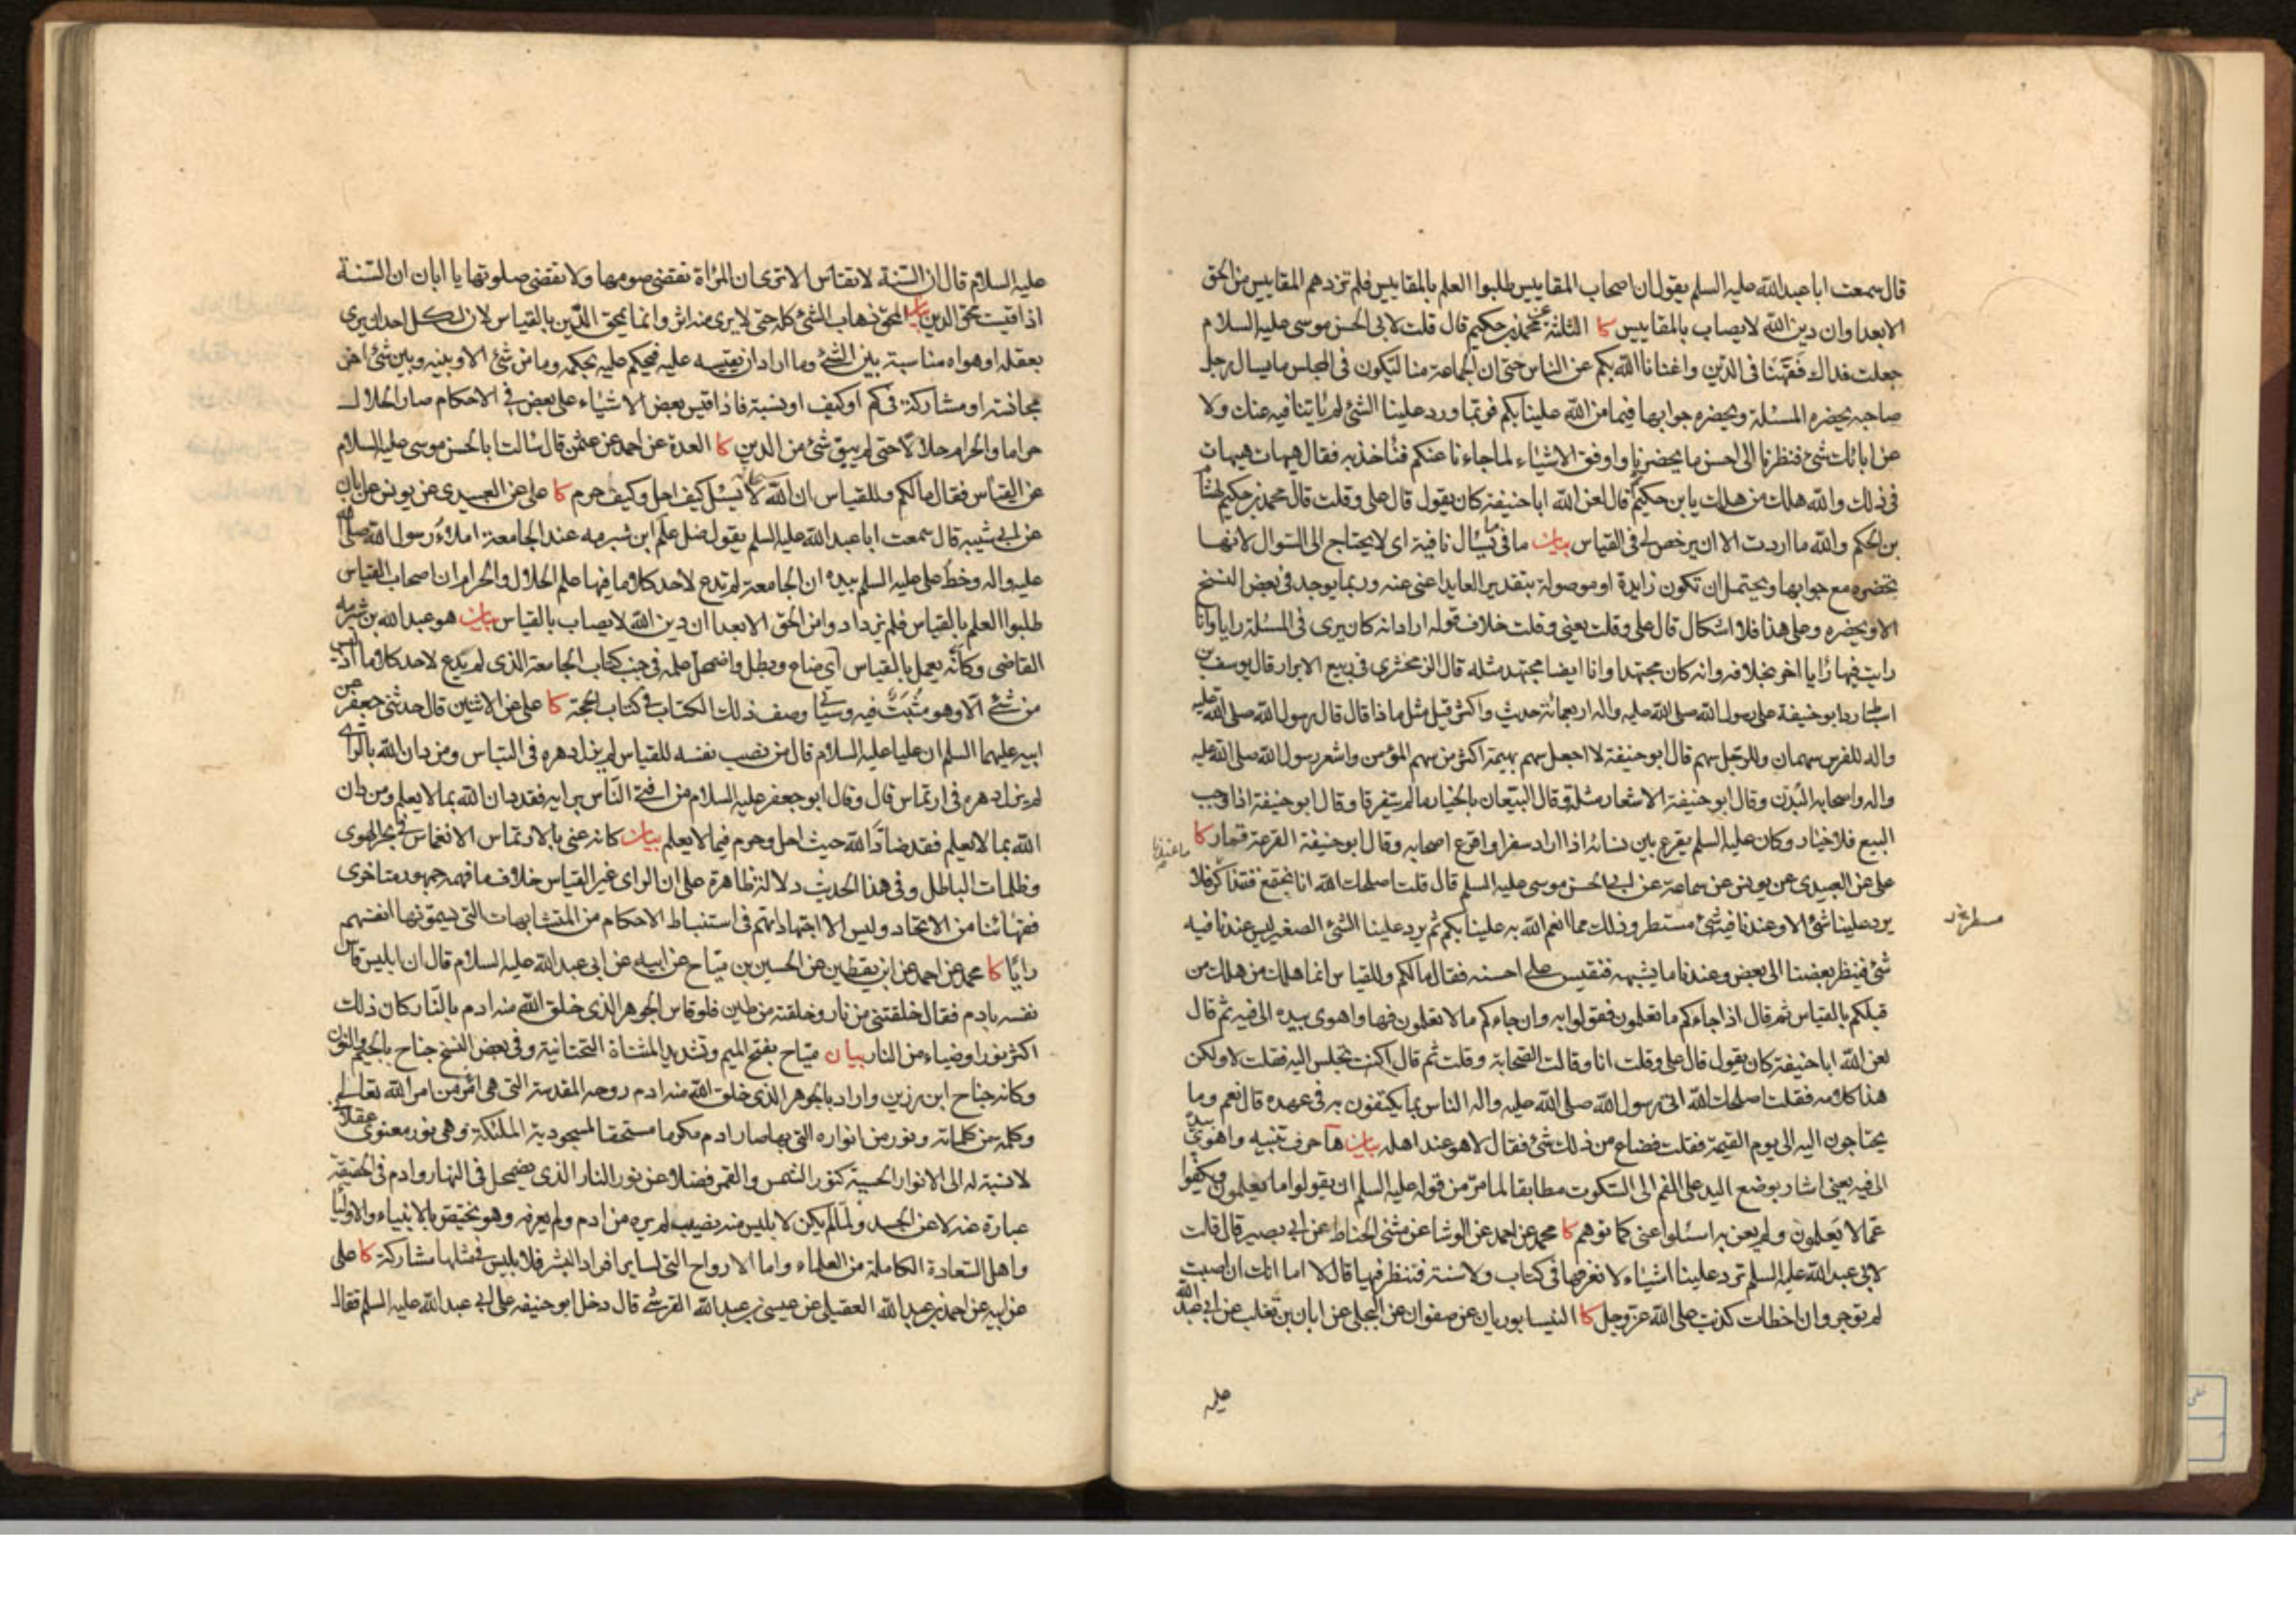 قال سمعت ابا عبد الله عليه السلم يقول ان اصحاب المقاييس طلبوا العلم بالمقاييس فلم تزدهم المقاييس من الحق
الا بعدا وان دين الله لا يصاب بالمقاييس كا الثلثة عن محمد بن حكيم قال قلت لابى الحسن موسى عليه السلام
جعلت فداك فقهنا فى الدين واغنانا الله بكم عن الناس حتى ان الجماعة منا لتكون فى المجلس ما يسال رجل
صاحبه يحضره المسئلة ويحضره جوابها فيما من الله علينا بكم فربما ورد علينا الشئ لم ياتنا فيه عنك ولا
عن ابائك شئ فنظرنا الى احسن ما يحضرنا واوفق الاشياء لما جاءنا عنكم فناخذ به فقال هيهات هيهات
فى ذلك والله هلك من هلك يا بن حكيم قال لعن الله ابا حنيفة كان يقول قال على وقلت قال محمد بن حكيم لهشام
بن الحكم والله ما اردت الا ان يرخص لى فى القياس بيان ما فى ما يسال نافية اى لا يحتاج الى السوال لانها
تحضره مع جوابها ويحتمل ان تكون زايدة او موصولة بتقدير العايد اعنى عنه وربما يوجد فى بعض النسخ
الا ويحضره وعلى هذا فلا اشكال قال على وقلت يعنى وقلت خلاف قوله اراد انه كان يرى فى المسئلة رايا وانا
رايت فيها رايا اخر بخلافه وانه كان مجتهدا وانا ايضا مجتهد مثله قال الزمخشرى فى ربيع الابرار قال يوسف بن
اسباط رد ابو حنيفة على رسول الله صلى الله عليه واله اربعمائة حديث واكثر قيل مثل ماذا قال قال رسول الله صلى الله عليه
واله للفرس سهمان وللرجل سهم قال ابو حنيفة لا اجعل سهم بهيمة اكثر من سهم المؤمن واشعر رسول الله صلى الله عليه
واله واصحابه البدن وقال ابو حنيفة الاشعار مثلة وقال البيعان بالخيار ما لم يتفرقا وقال ابو حنيفة اذا وجب
البيع فلا خيار وكان عليه السلم يقرع بين نسائه اذا اراد سفرا واقرع اصحابه وقال ابو حنيفة القرعة قمار كا
على عن العبيدى عن يونس عن سماعة عن ابى الحسن موسى عليه السلم قال قلت اصلحك الله انا نجتمع فنتذاكر فلا
يرد علينا شئ الا وعندنا فيه شئ مستطر وذلك مما انعم الله به علينا بكم ثم يرد علينا الشئ الصغير ليس عندنا فيه
شئ فينظر بعضنا الى بعض وعندنا ما يشبهه فنقيس على احسنه فقال ما لكم وللقياس انما هلك من هلك من
قبلكم بالقياس ثم قال اذا جاءكم ما تعلمون فقولوا به وان جاءكم ما لا تعلمون فها واهوى بيده الى فيه ثم قال
لعن الله ابا حنيفة كان يقول قال على وقلت انا وقالت الصحابة وقلت ثم قال اكنت تجلس اليه فقلت لا ولكن
هذا كلامه فقلت اصلحك الله اتى رسول الله صلى الله عليه واله الناس بما يكتفون به فى عهده قال نعم وما
يحتاجون اليه الى يوم القيمة فقلت فضاع من ذلك شئ فقال لا هو عند اهله بيان ها حرف تنبيه واهوى بيده
الى فيه يعنى اشار بوضع اليد على الفم الى السكوت مطابقا لما مر من قوله عليه السلم ان يقولوا ما يعلمون ويكفوا
عما لا يعلمون ولم يعن به اسئلوا عنى كما توهم كا محمد عن احمد عن الوشا عن مثنى الحناط عن ابى بصير قال قلت
لابى عبد الله عليه السلم ترد علينا اشياء لا نعرفها فى كتاب ولا سنة فننظر فيها قال لا اما انك ان اصبت
لم توجر وان اخطات كذبت على الله عز وجل كا النيسابوريان عن صفوان عن البجلى عن ابان بن تغلب عن ابى عبد الله
عليه
عليه السلام قال ان السنة لا تقاس الا ترى ان المراة تقضى صومها ولا تقضى صلوتها يا ابان ان السنة
اذا قيست محق الدين بيان المحق ذهاب الشئ كله حتى لا يرى منه اثر وانما يمحق الدين بالقياس لان لكل احد ان يرى
بعقله او هواه مناسبة بين الشئ وما اراد ان يقيسه عليه فيحكم عليه بحكمه وما من شئ الا وبينه وبين شئ اخر
مجانسة او مشاركة فى كم او كيف او نسبة فاذا قيس بعض الاشياء على بعض فى الاحكام صار الحلال
حراما والحرام حلالا حتى لم يبق شئ من الدين كا العدة عن احمد عن عثمن قال سالت ابا الحسن موسى عليه السلام
عن القياس فقال ما لكم وللقياس ان الله لا يسئل كيف احل وكيف حرم كا على عن العبيدى عن يونس عن ابان
عن ابى شيبه قال سمعت ابا عبد الله عليه السلم يقول ضل علم ابن شبرمه عند الجامعة املاء رسول الله صلى الله
عليه واله وخط على عليه السلم بيده ان الجامعة لم تدع لاحد كلاما فيها علم الحلال والحرام ان اصحاب القياس
طلبوا العلم بالقياس فلم يزدادوا من الحق الا بعدا ان دين الله لا يصاب بالقياس بيان هو عبد الله بن شبرمه
القاضى وكانه يعمل بالقياس اى ضاع وبطل واضمحل علمه فى جنب كتاب الجامعة الذى لم يدع لاحد كلاما اذ ليس
من شئ الا وهو مثبت فيه وسياتى وصف ذلك الكتاب فى كتاب الحجة كا على عن الاثنين قال حدثنى جعفر عن
ابيه عليهما السلم ان عليا عليه السلام قال من نصب نفسه للقياس لم يزل دهره فى التباس ومن دان الله بالراى
لم يزل دهره فى ارتماس قال وقال ابو جعفر عليه السلام من افتى الناس برايه فقد دان الله بما لا يعلم ومن دان
الله بما لا يعلم فقد ضاد الله حيث احل وحرم فيما لا يعلم بيان كانه عنى بالارتماس الانغماس فى بحر الهوى
وظلمات الباطل وفى هذا الحديث دلالة ظاهرة على ان الراى غير القياس خلاف ما فهمه جمهور متاخرى
فقهائنا من الاتحاد وليس الا اجتهاداتهم فى استنباط الاحكام من المتشابهات التى يسمونها انفسهم
رايا كا محمد عن احمد عن ابن يقطين عن الحسين بن مياح عن ابيه عن ابى عبد الله عليه السلام قال ان ابليس قاس
نفسه بادم فقال خلقتنى من نار وخلقته من طين فلو قاس الجوهر الذى خلق الله منه ادم بالنار كان ذلك
اكثر نورا وضياء من النار بيان مياح بفتح الميم وتشديد المثناة التحتانية وفى بعض النسخ جناح بالجيم والنون
وكانه جناح ابن رزين واراد بالجوهر الذى خلق الله منه ادم روحه المقدسة التى هى اثر من امر الله تعالى
وكلمة من كلماته ونور من انواره التى بها صار ادم مكرما مستحقا لمسجودية الملئكة وهى نور معنوى عقلانى
لا نسبة له الى الانوار الحسية كنور الشمس والقمر فضلا عن نور النار الذى يضمحل فى النهار وادم فى الحقيقة
عبارة عنه لا عن الجسد ولما لم يكن لابليس منه نصيب لم يره من ادم ولم يعرفه وهو يختص بالانبياء والاوليا
واهل السعادة الكاملة من العلماء واما الارواح التى لساير افراد البشر فلابليس فى مثلها مشاركة كا على
عن ابيه عن احمد بن عبد الله العقيلى عن عيسى بن عبد الله القرشى قال دخل ابو حنيفه على ابى عبد الله عليه السلم فقال